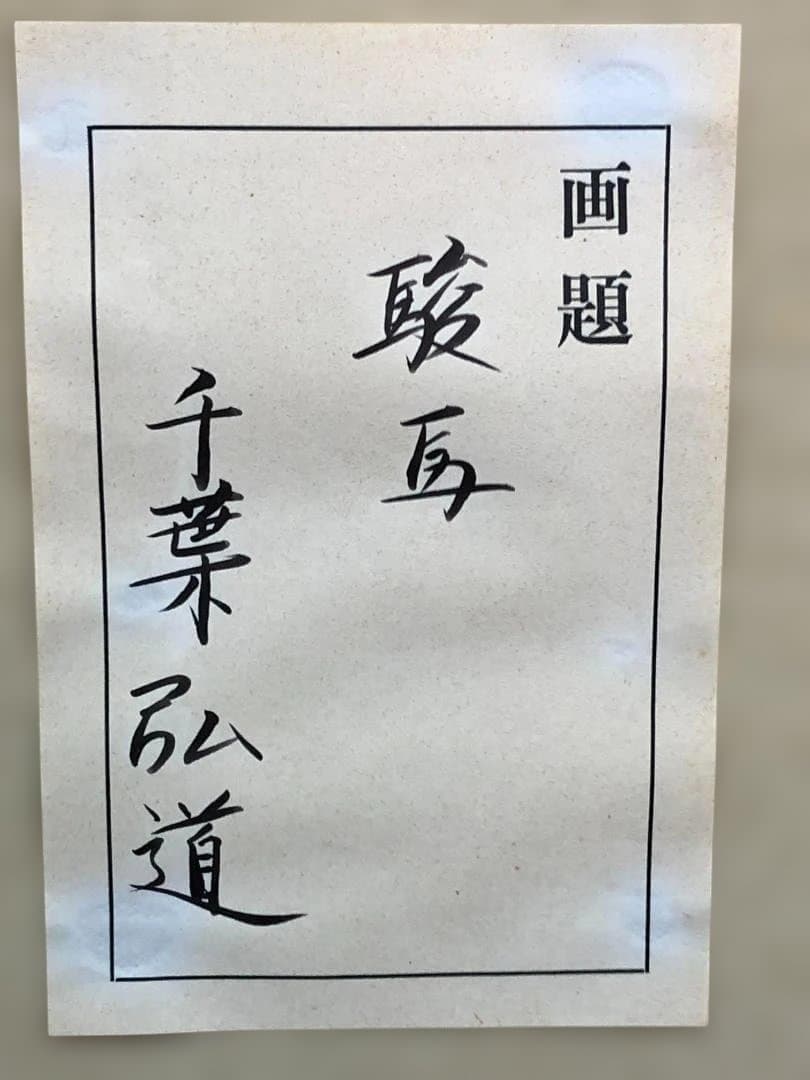 画題
駿馬
千葉弘道